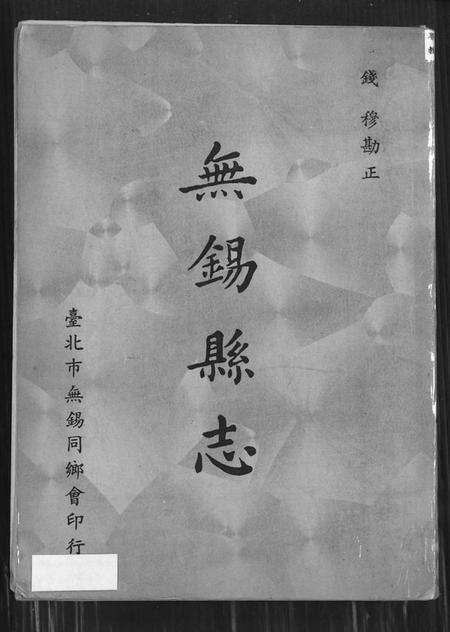 錢穆勘正
無錫縣志
臺北市無錫同鄉會印行